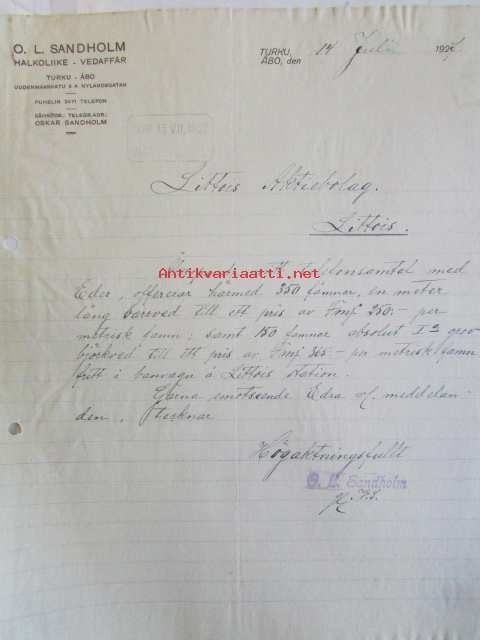 O. L. SANDHOLM
HALKOLIIKE - VEDAFFÄR
TURKU - ÅBO
UUDENMAANKATU 5 A NYLANDSGATAN
PUHELIN 3471 TELEFON
SÄHKÖOS.: TELEGR.ADR.:
OSKAR SANDHOLM
TURKU,
ÅBO, den 14 Juli 1927.
15 VII. 1927
Littois Aktiebolag.
Littois.
Antikvariaatti.net
telefonsamtal med
Eder, offererar härmed 350 famnar, en meter
lång barrved till ett pris av Fmk 250:- per
metrisk famn; samt 150 famnar absolut I a grov
björkved till ett pris av Fmk 365:- per metrisk famn
fritt i banvagn å Littois station.
Gärna emotseende Edra v/. meddelan-
den, tecknar
Högaktningsfullt
O. L. Sandholm